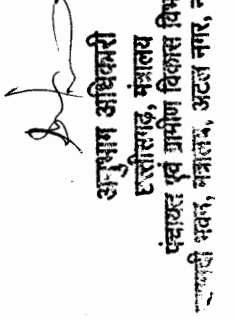 अनुभाग अधिकारी
छत्तीसगढ़, मंत्रालय
पंचायत एवं ग्रामीण विकास
भवन, मंत्रालय, अटल नगर,